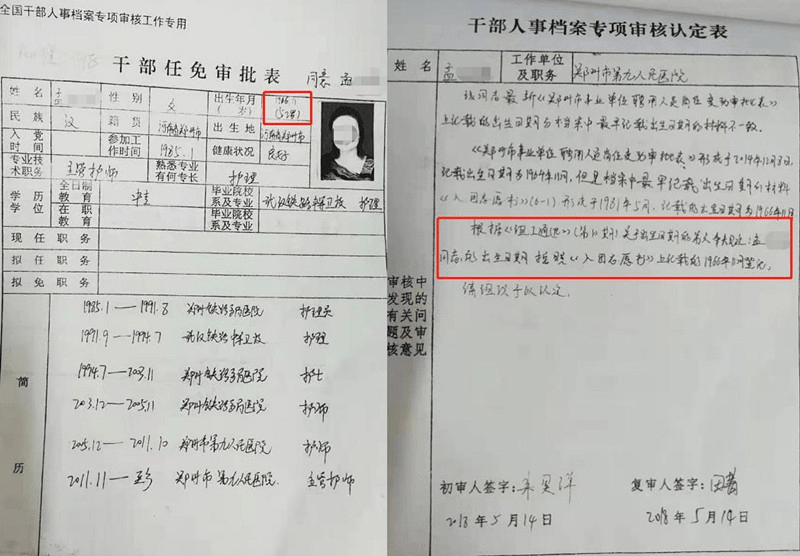 全国干部人事档案专项审核工作专用
干部任免审批表
同意 孟
姓名 孟 性别 女 出生年月(岁) 1966.11
民族 汉 籍贯 河南郑州市 出生地 河南郑州市
入党时间 参加工作时间 1985.1 健康状况 良好
专业技术职务 主管护师 熟悉专业有何专长 护理
学历学位 全日制教育 中专 毕业院校系及专业 武汉铁路卫校 护理
在职教育 毕业院校系及专业
现任职务
拟任职务
拟免职务
简历
1985.1——1991.8 郑州铁路局医院 护理员
1991.9——1994.7 武汉铁路卫校 护理
1994.7——2003.11 郑州铁路局医院 护士
2003.12——2005.11 郑州铁路局医院 护师
2005.12——2011.10 郑州市第九人民医院 护师
2011.11——至今 郑州市第九人民医院 主管护师
干部人事档案专项审核认定表
姓名 孟 工作单位及职务 郑州市第九人民医院
审核中发现的有关问题及审核意见
该同志最新《郑州市事业单位聘用人员岗位变动审批表》
上记载的出生日期与档案中最早记载出生日期的材料不一致。
《郑州市事业单位聘用人员岗位变动审批表》形成于2014年12月3日,
记载的出生日期为1964年11月,但是档案中最早记载出生日期的材料
《入团志愿书》(6-1)形成于1981年5月,记载的出生日期为1966年11月
根据《组工通讯》(第11期)关于出生日期的有关争议认定:孟
同志的出生日期按照《入团志愿书》上记载的1966年11月登记。
请组织予以认定。
初审人签字:
复审人签字:
2018年5月14日
2018年5月14日